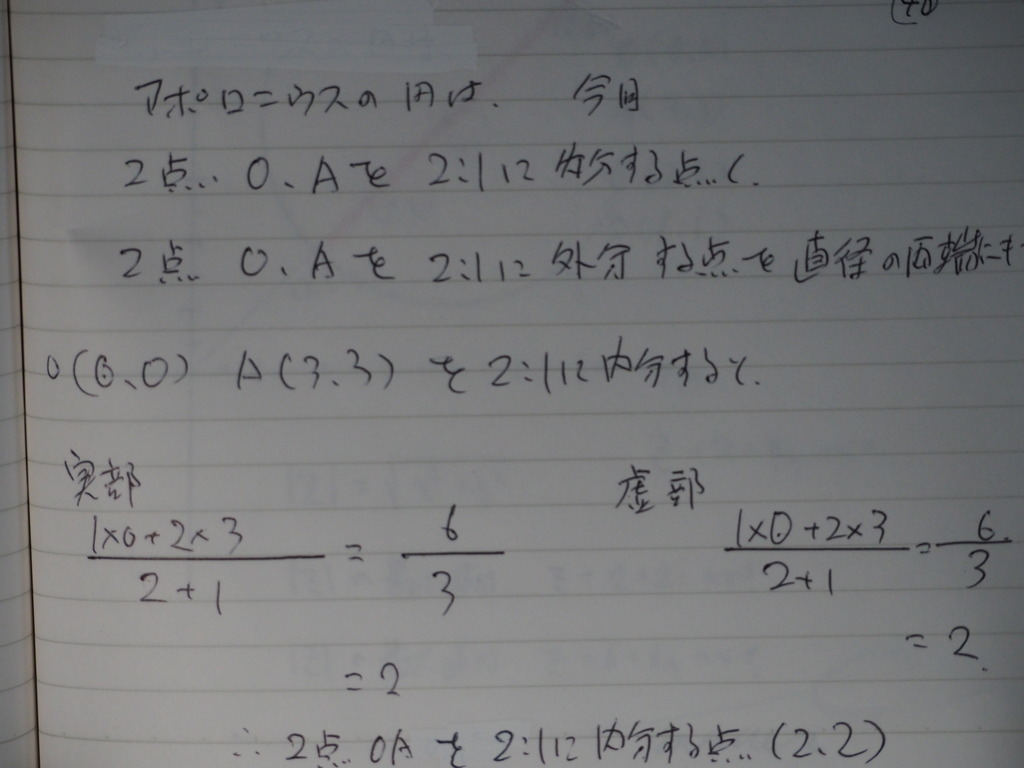 アポロニウスの円は、 今回
2点 O、Aを 2:1に 内分する点と、
2点 O、Aを 2:1に 外分 する点を 直径の両端にも
O(0、0) A(3、3) を 2:1に内分すると、
実部 虚部
1×0+2×3 / 2+1 = 6 / 3 1×0+2×3 / 2+1 = 6 / 3
= 2.
= 2
∴ 2点 OA を 2:1に 内分する点 (2、2)